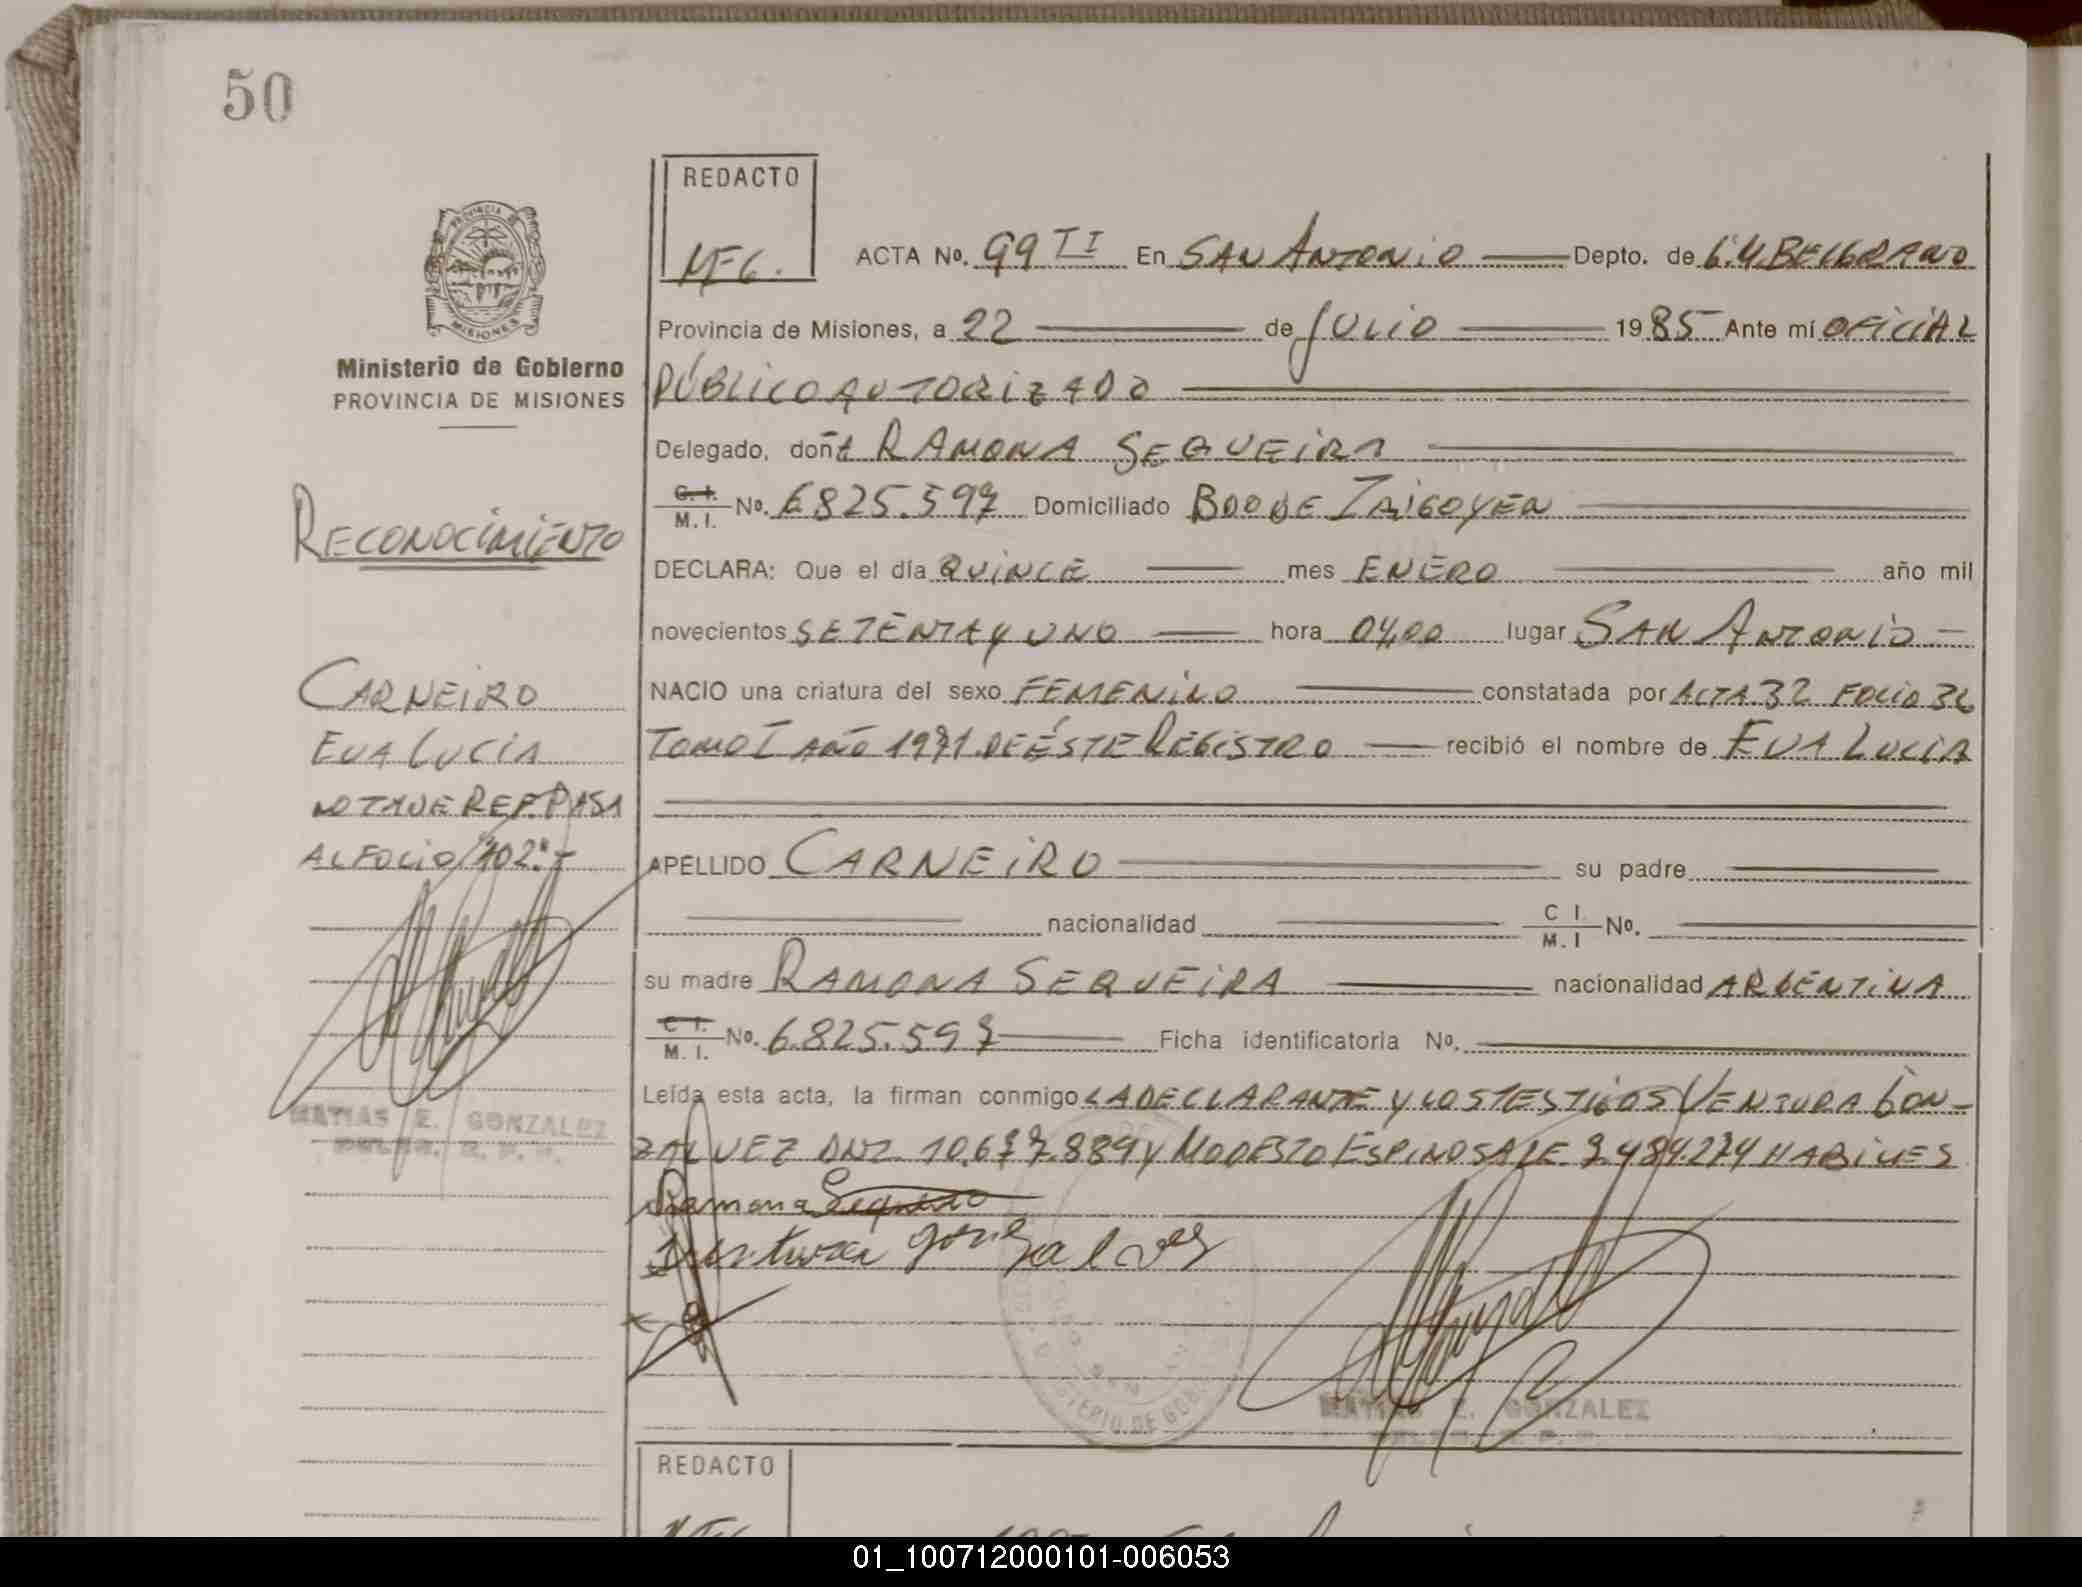 50
REDACTO
MEG.
ACTA No. 99 TI En SAN ANTONIO Depto. de G.M.BELGRANO
Provincia de Misiones, a 22 de JULIO 1985 Ante mí OFICIAL
PÚBLICO AUTORIZADO
Delegado, doña RAMONA SEQUEIRA
C. I. / M. I. No. 6825.597 Domiciliado BDO DE IRIGOYEN
DECLARA: Que el día QUINCE mes ENERO año mil
novecientos SETENTA y UNO hora 04,00 lugar SAN ANTONIO
NACIO una criatura del sexo FEMENINO constatada por ACTA 32 FOLIO 32
TOMO I AÑO 1971 DE ÉSTE REGISTRO recibió el nombre de EVA LUCIA
APELLIDO CARNEIRO su padre
nacionalidad C I. / M. I No.
su madre RAMONA SEQUEIRA nacionalidad ARGENTINA
C. I. / M. I. No. 6.825.597 Ficha identificatoria No.
Leída esta acta, la firman conmigo LA DECLARANTE Y LOS TESTIGOS VENTURA GON-
ZALVEZ DNI. 10.677.889 y MODESTO ESPINOSA LE 7.484.274 HABILES
Ramona
Ventura gonzalves
MATIAS E. GONZALEZ
PROVINCIA DE
MISIONES
Ministerio de Gobierno
PROVINCIA DE MISIONES
RECONOCIMIENTO
CARNEIRO
EVA LUCIA
NOTA DE REF. PASA
AL FOLIO 102
MATIAS E. GONZALEZ
REDACTO
01_100712000101-006053